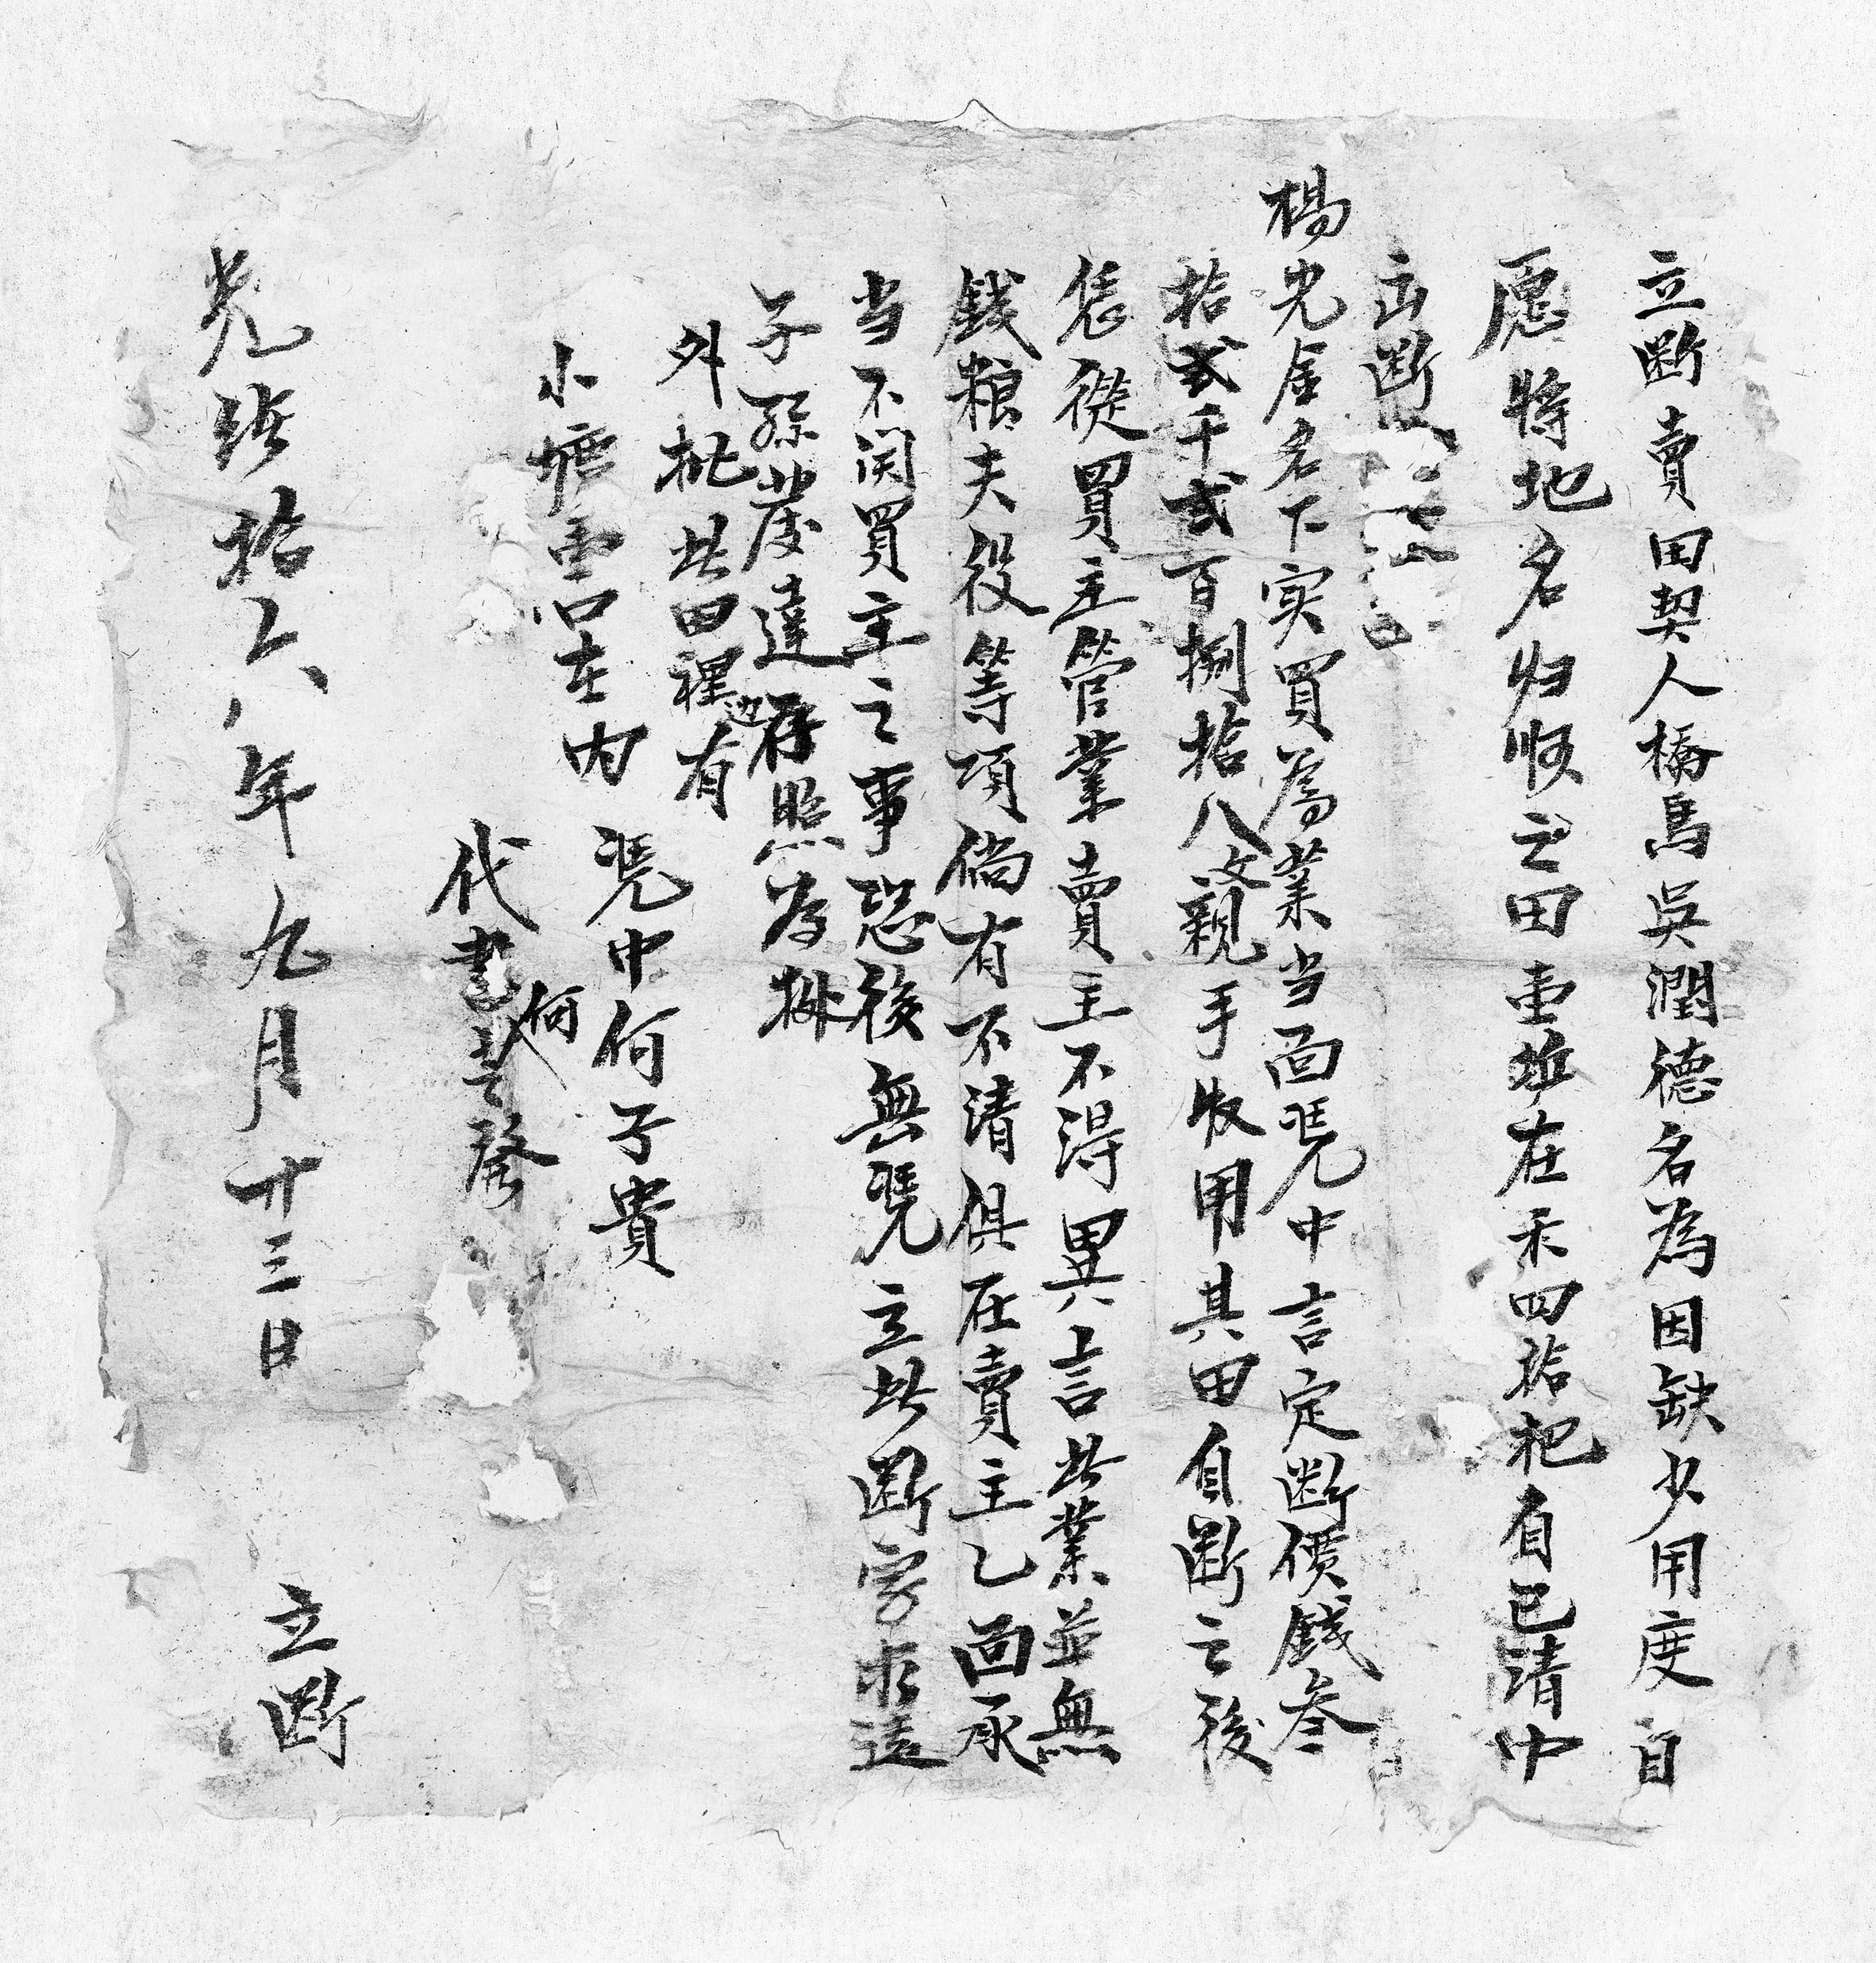 立断賣田契人橋馬吳潤德名為因缺少用度自
愿将地名归 之田壹坵在禾四拾把自已请中
出断
楊光金名下实買為業当面凴中言定断價錢叁
拾弍千弍百捌拾八文親手收用其田自断之後
恁從買主管業賣主不得異言此業並無
錢粮夫役等項倘有不清俱在賣主乙面承
当不関買主之事恐後無凴立此断字永遠
子孫發達存照為據
外批此田裡边有
小塘壹口在内
凴中何子貴
代書何 發
光緒拾六年九月廿三日 立断